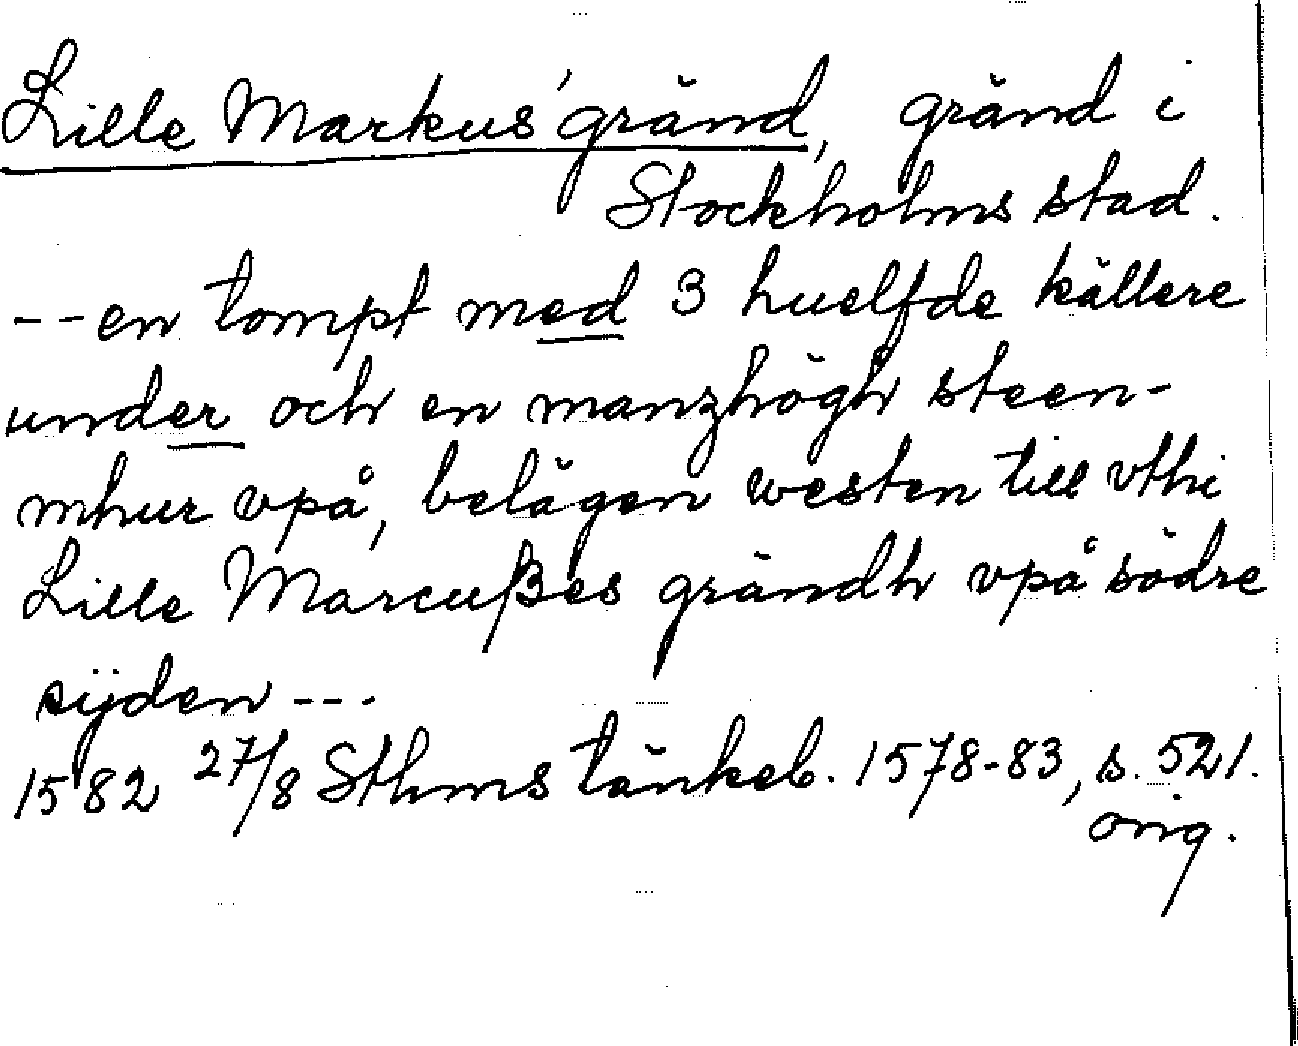 Lille Markus' gränd, gränd i
Stockholms stad.
--en tompt med 3 huelfde källere
under och en manzhögh steen-
mhur vpå, belägen westen till vthi
Lille Marcußes grändh vpå södre
sijden ---
1582 27/8 Sthms tänkeb. 1578-83, s. 521.
orig.